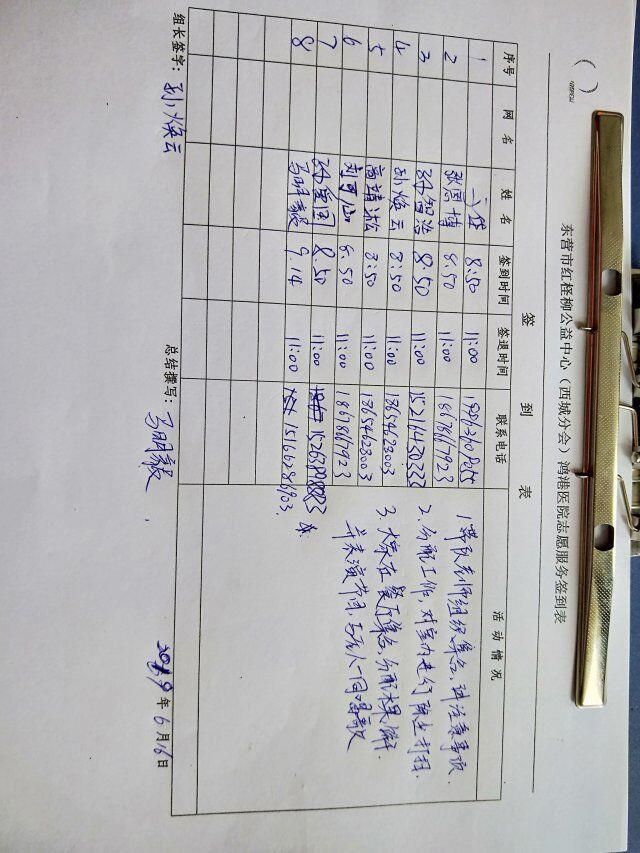 东营市红柽柳公益中心（西城分会）鸿港医院志愿服务签到表
签到表
序号 网名 姓名 签到时间 签退时间 联系电话 活动情况
1 8:50 11:00
2 张恩博 8:50 11:00 18678667923
3 孙智浩 8:50 11:00
4 孙焕云 8:50 11:00 13654628003
5 高靖淞 8:50 11:00 13654628003
6 8:50 11:00 18678667923
7 8.50 11:00
8 马明毅 9.14 11:00 15166286903
1 带队老师组织集合，讲注意事项.
2. 分配工作，对室内进行除尘打扫.
3. 大家在餐厅集合，分配水果，
并表演节目，与老人一同唱歌
组长签字：孙焕云 总结撰写：马明毅 2019年6月16日